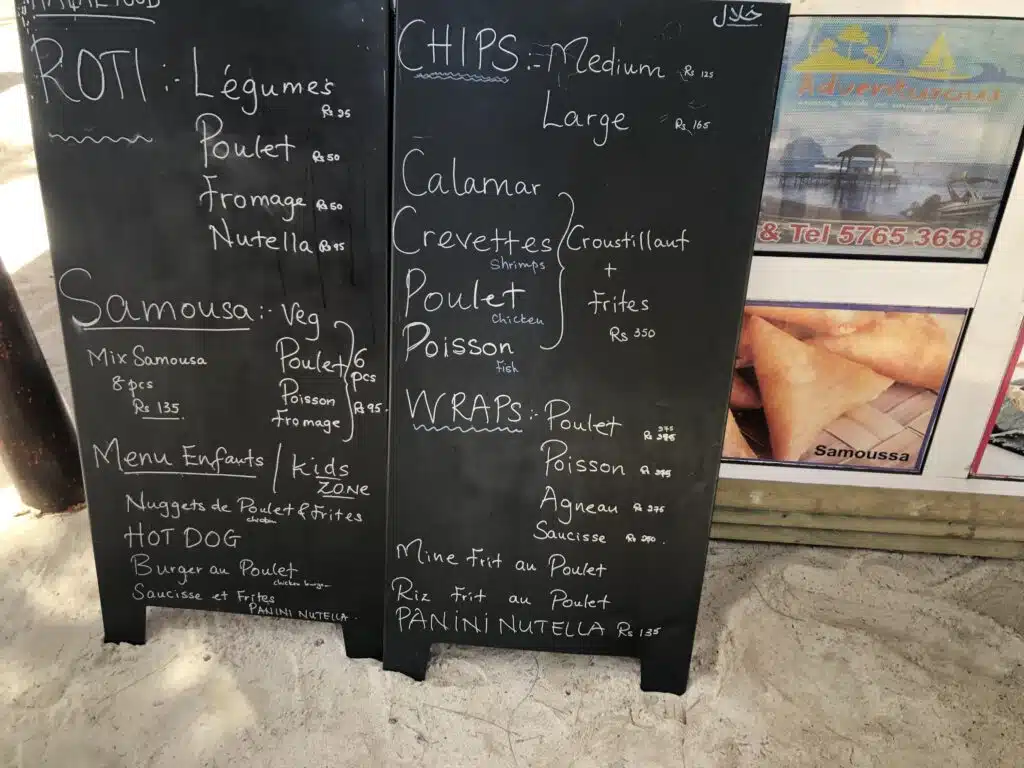 HALAL FOOD
ROTI :- Légumes
Rs 35
Poulet Rs 50
Fromage Rs 50
Nutella Rs 45
Samousa :- Veg
Mix Samousa
8 pcs
Rs 135
Poulet
Poisson
Fromage
6
pcs
Rs 95.
Menu Enfants / Kids
ZONE
Nuggets de Poulet & Frites
chicken
HOT DOG
Burger au Poulet
chicken burger
Saucisse et Frites
PANINI NUTELLA.
خلال
CHIPS :- Medium Rs 125
Large Rs 165
Calamar
Crevettes
Shrimps
Poulet
chicken
Poisson
fish
Croustillant
+
Frites
Rs 350
WRAPS :- Poulet Rs 275
Poisson Rs 275
Agneau Rs 275
Saucisse Rs 250
Mine Frit au Poulet
Riz Frit au Poulet
PANINI NUTELLA Rs 135
Adventurous
& Tel 5765 3658
Samoussa